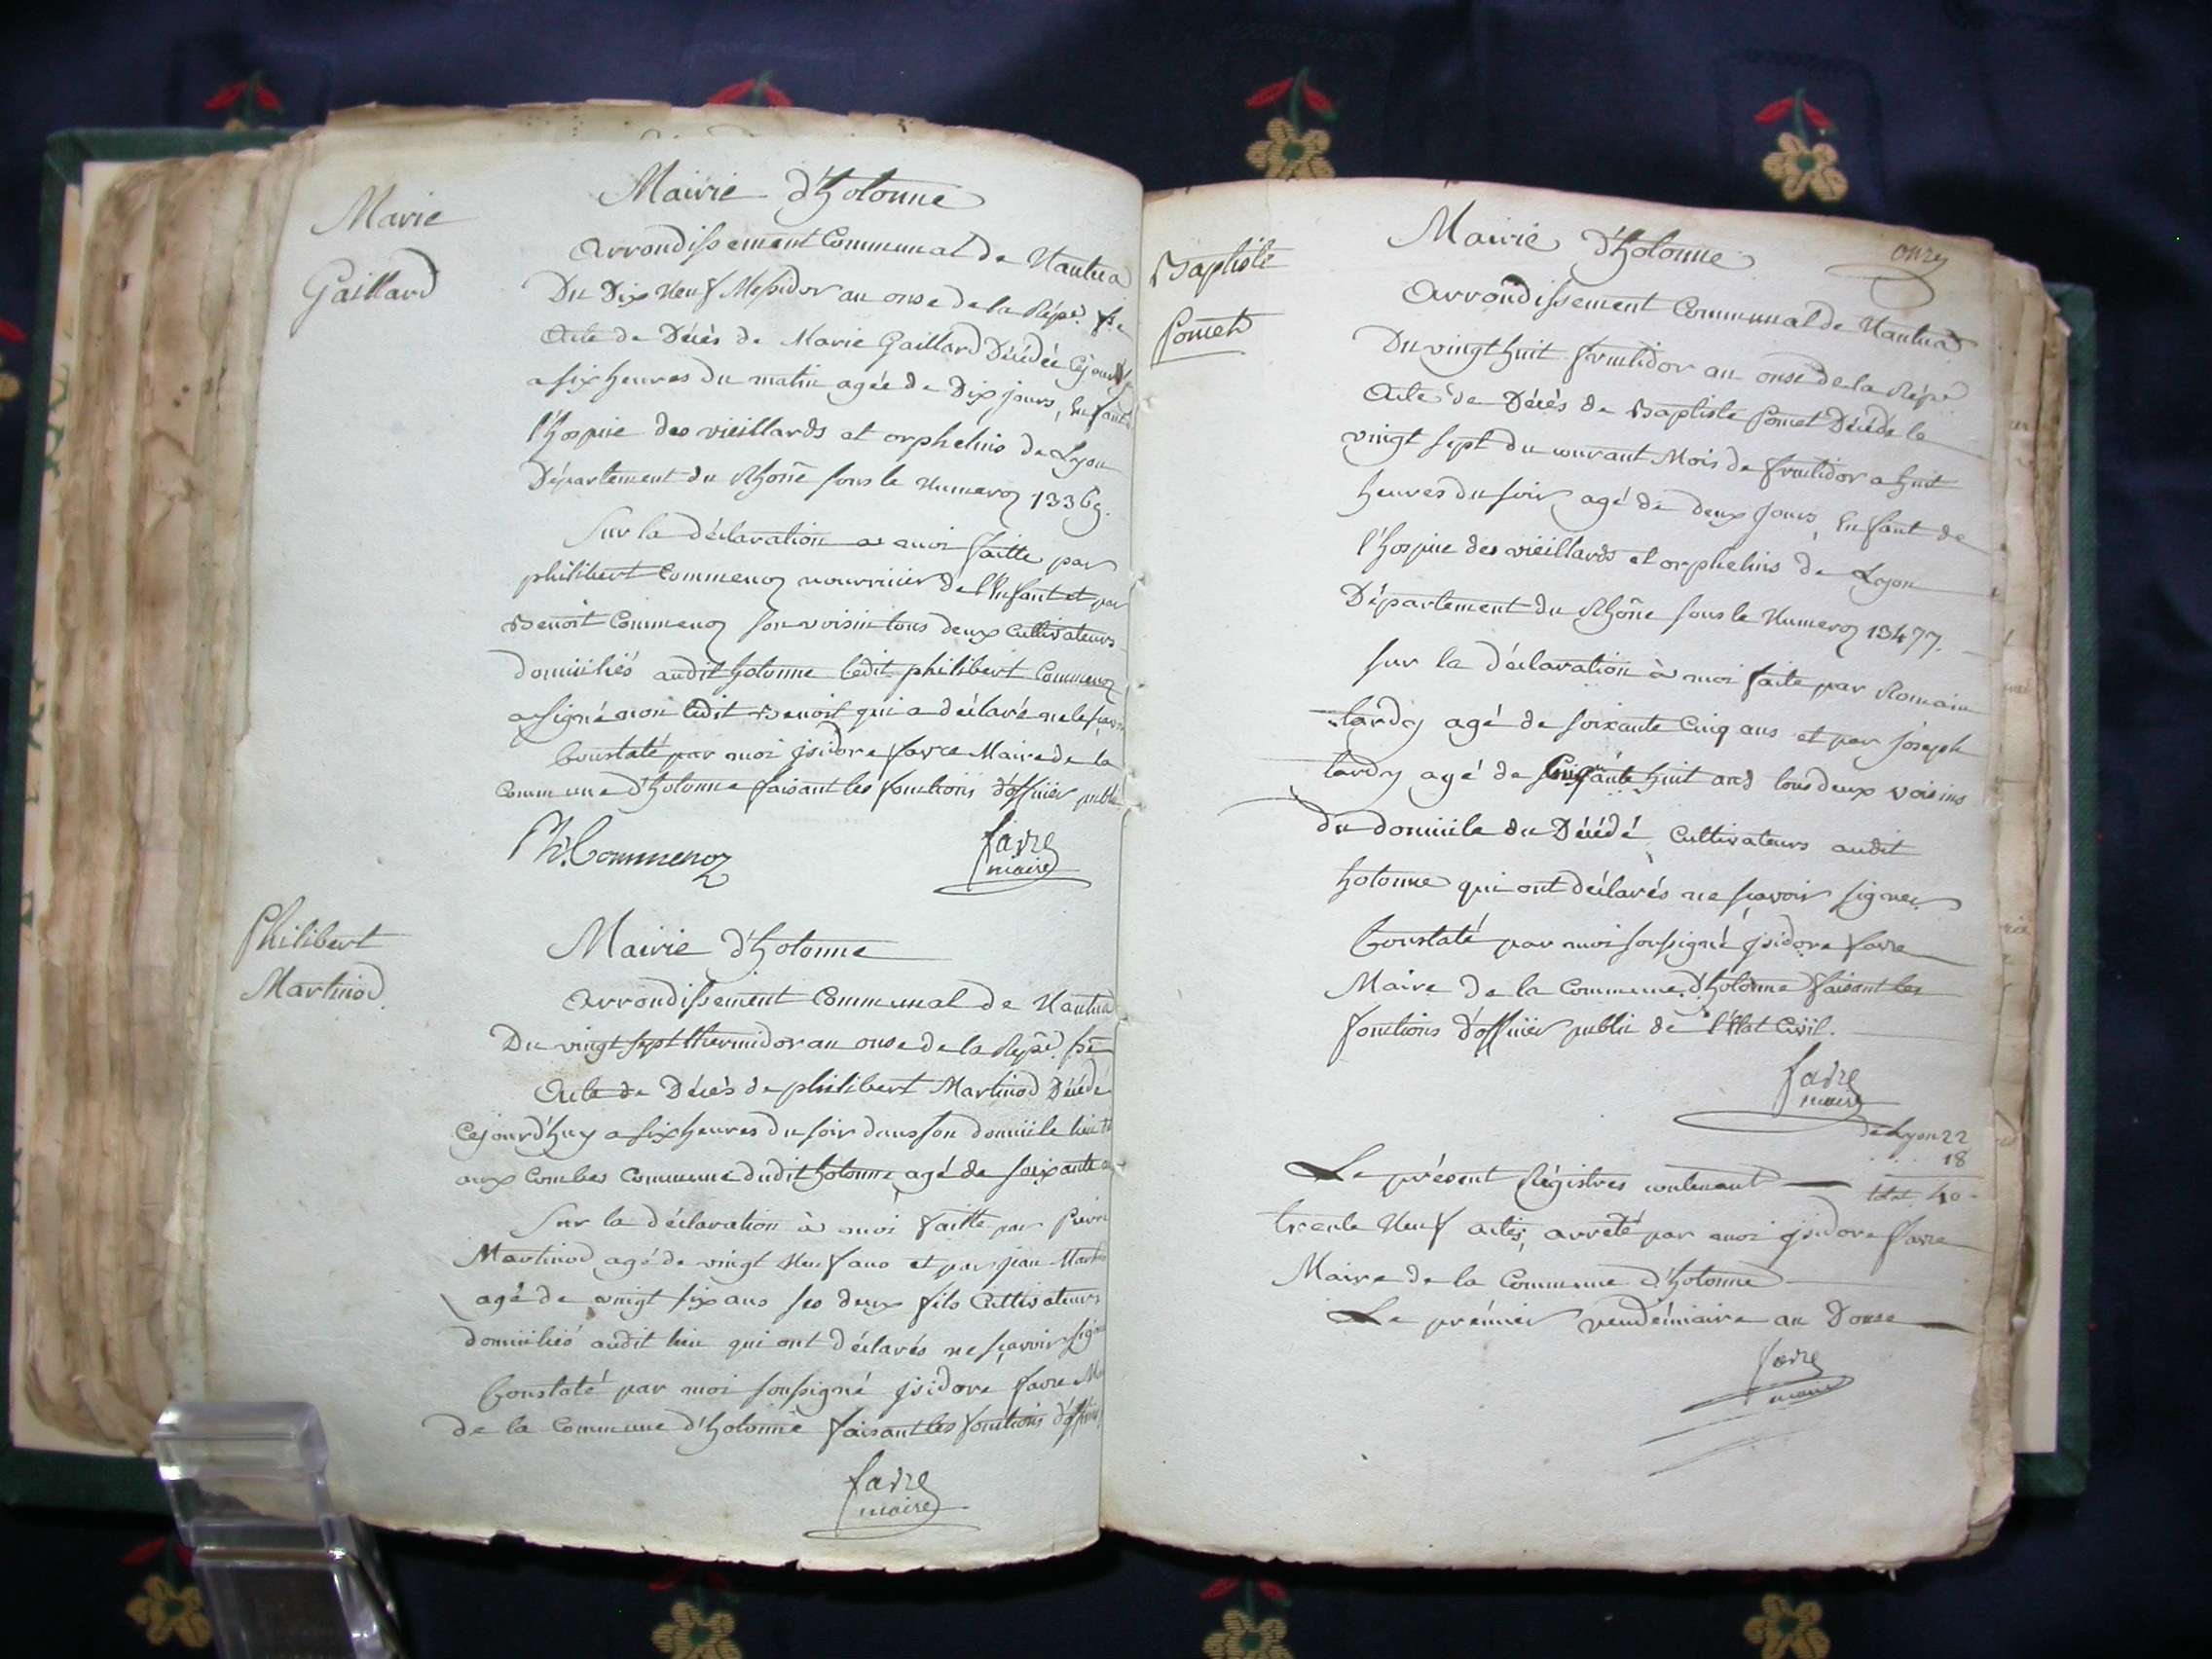 Marie
Gaillard
Mairie d'hotonne
Arrondissement Communal de Nantua
Du Dix Neuf Messidor an onse de la Répe. fse
Acte de Décès de Marie Gaillard Décédée Cejourd'
a six heures du matin agée de Dix jours, Enfant
l'hospice des vieillards et orphelins de Lyon
Département du Rhône sous le Numeroz 13369.
Sur la déclaration a moi faitte par
philibert Commenoz nourricier de l'Enfant et par
Benoit Commenoz son voisin tous deux Cultivateurs
domiciliés audit hotonne ledit philibert Commenoz
a signé non ledit Benoit qui a déclaré ne le sçavoir
Constaté par moi jsidore favre Maire de la
Commune d'hotonne faisant les fonctions d'officier public
Ph. Commenoz
favre
maire
Philibert
Martinod
Mairie d'hotonne
Arrondissement Communal de Nantua
Du vingt sept thermidor an onse de la Répe. fse
Acte de Décès de philibert Martinod Décédé
Cejourd'huy a six heures du soir dans son domicile lieu
aux Combes Commune dudit hotonne agé de soixante
Sur la déclaration à moi faitte par Pierre
Martinod agé de vingt Neuf ans et par jean Martin
agé de vingt six ans ses deux fils Cultivateurs
domiciliés audit lieu qui ont déclarés ne sçavoir signe
Constaté par moi soussigné jsidore favre M
de la Commune d'hotonne faisant les fonctions d'officier
favre
maire
onze
Baptiste
Pomet
Mairie d'hotonne
Arrondissement Communal de Nantua
Du vingt huit fructidor an onse de la Répe
Acte de Décès de Baptiste Pomet Décédé le
vingt sept du courant Mois de fructidor a huit
heures du soir agé de deux jours, Enfant de
l'hospice des vieillards et orphelins de Lyon
Département du Rhône sous le Numeroz 13477.
Sur la déclaration à moi faite par Romain
tardy agé de soixante Cinq ans et par joseph
tardy agé de Cinquante huit ans tous deux voisins
du domicile du Décédé, Cultivateurs audit
hotonne qui ont déclarés ne sçavoir signer
Constaté par moi soussigné jsidore favre
Maire de la Commune d'hotonne faisant les
fonctions d'officier public de l'Etat Civil.
favre
maire
de Lyon 22
18
total 40
Le présent Régistres contenant
trente Neuf actes, arrêté par moi jsidore favre
Maire de la Commune d'hotonne
Le prémier vendémiaire an Douse
favre
maire